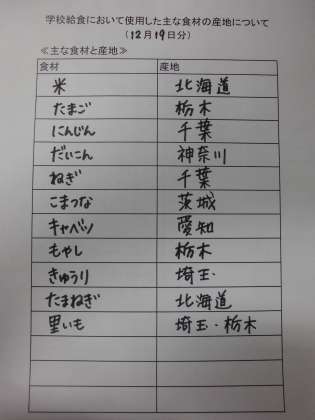 学校給食において使用した主な食材の産地について
(12月19日分)
≪主な食材と産地≫
食材 産地
米 北海道
たまご 栃木
にんじん 千葉
だいこん 神奈川
ねぎ 千葉
こまつな 茨城
キャベツ 愛知
もやし 栃木
きゅうり 埼玉
たまねぎ 北海道
里いも 埼玉・栃木